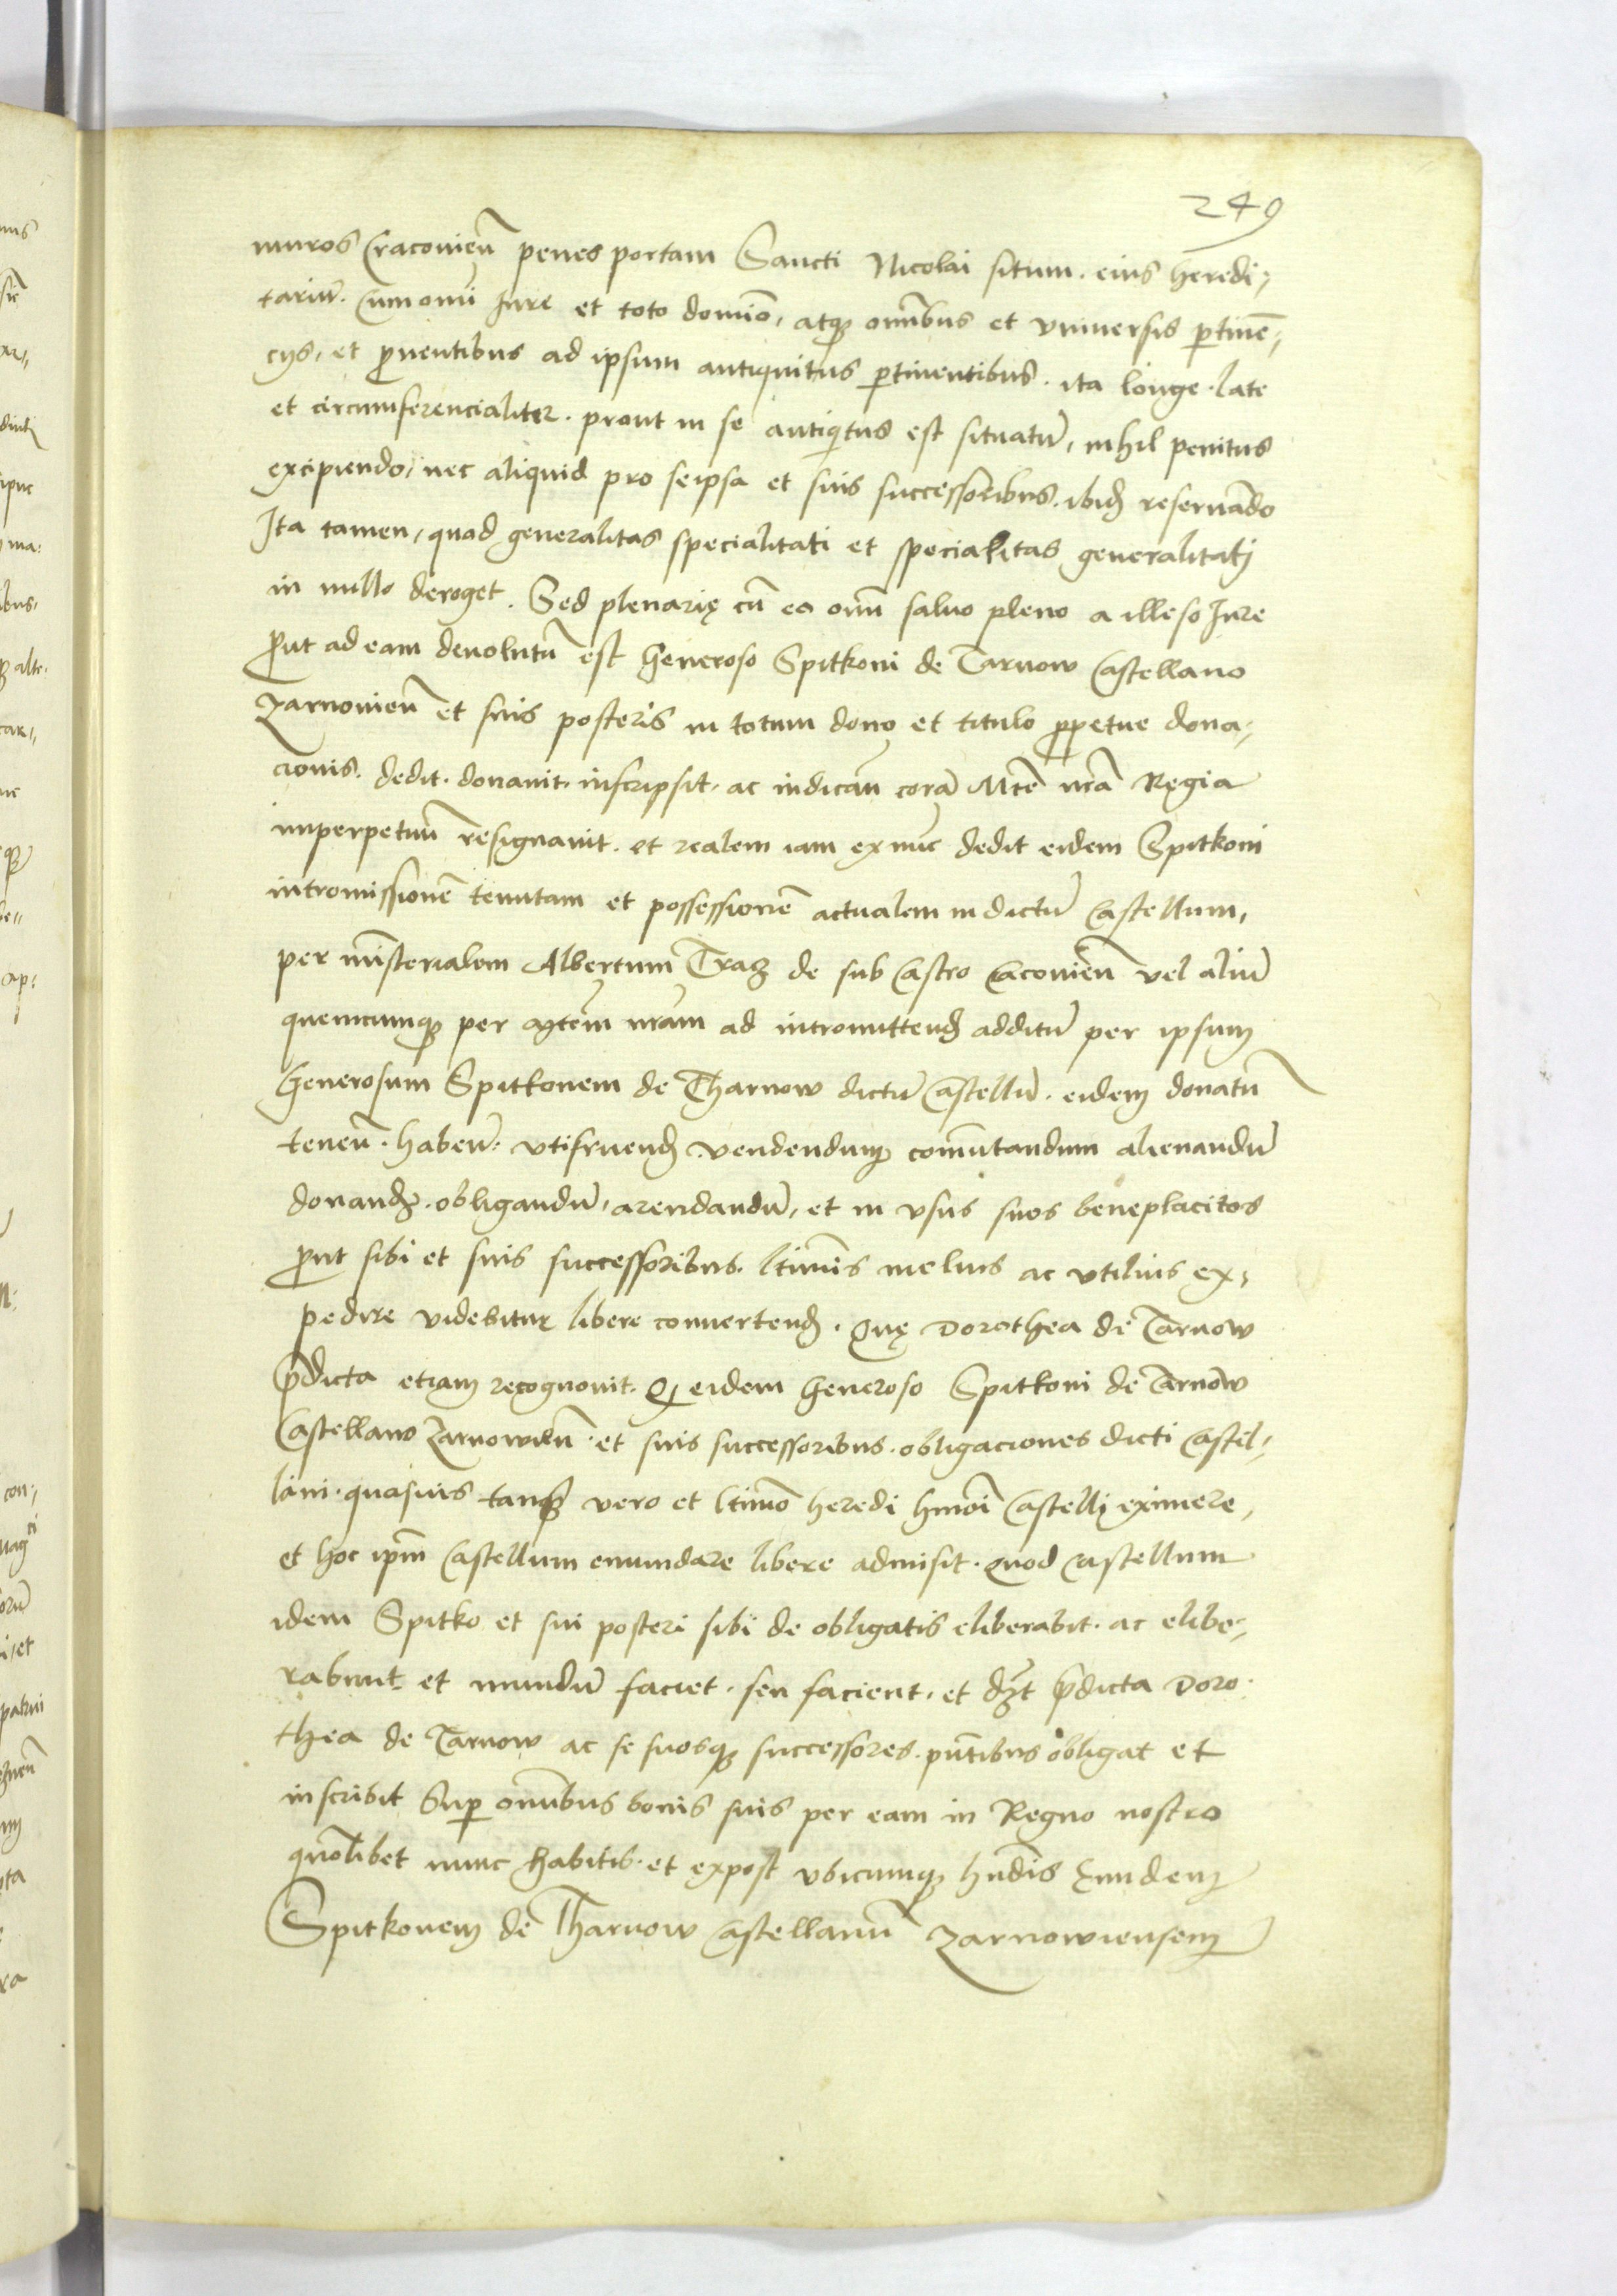 249
muros Cracovieñ penes portam Sancti Nicolai situm. eius heredi,
tariũ. Cum omi Jure et toto domio, atq omibus et vniuersis ptinẽ,
cijs, et puentibus ad ipsum antiquitus ptinentibus. ita longe. late
et circumferencialiter. prout in se antiqitus est situatũ, nihil penitus
excipiendo, nec aliquid pro seipsa et suis successoribus. ibid reseruãdo
Ita tamen, quod generalitas specialitati et specialitas generalitatj
in nullo deroget. Sed plenarię cũ eo omi saluo pleno a illeso Jure
put ad eam deuolutũ est Generoso Spitkoni de Tarnow Castellano
Zarnovieñ et suis posteris in totum dono et titulo ppetue dona,
cionis. dedit. donauit. inscripsit. ac corã Mte nrã Regia
imperpetuũ resignauit. et realem iam exnũc dedit eidem Spitkoni
intromissionẽ tenutam et possessionẽ actualem in dictũ Castellum,
per ministerialem Albertum de sub Castro Cracovieñ vel aliũ
quemcumq per nram ad intromittend additũ per ipsum
Generosum Spitkonem de Tharnow dictũ Castellũ. eidem donatũ
teneñ. habeñ. vtifruend vendendum comutandum alienandũ
donand. obligandũ, arendandũ, et in vsus suos beneplacitos
put sibi et suis successoribus. ltimis melius ac vtilius ex,
pedire videbitur libere conuertend. Quę Dorothea de Tarnow
pdicta etiam recognouit. Q eidem Generoso Spitkoni de Tarnow
Castellano Zarnowieñ. et suis successoribus. obligaciones dicti Castel,
lani. quasuis tanq vero et ltimo heredi hmoi Castelli eximere,
et hoc ipm Castellum emundare libere admisit. Quod Castellum
idem Spitko et sui posteri sibi de obligatis eliberabit. ac elibe,
rabunt et mundũ faciet. seu facient. et pdicta Doro
thea de Tarnow ac se suosq successores. pñtibus obligat et
inscribit Sup omibus bonis suis per eam in Regno nostro
quolibet nunc habitis. et expost vbicumq hñdis Eundem
Spitkonem de Tharnow Castellanũ Zarnowiensem